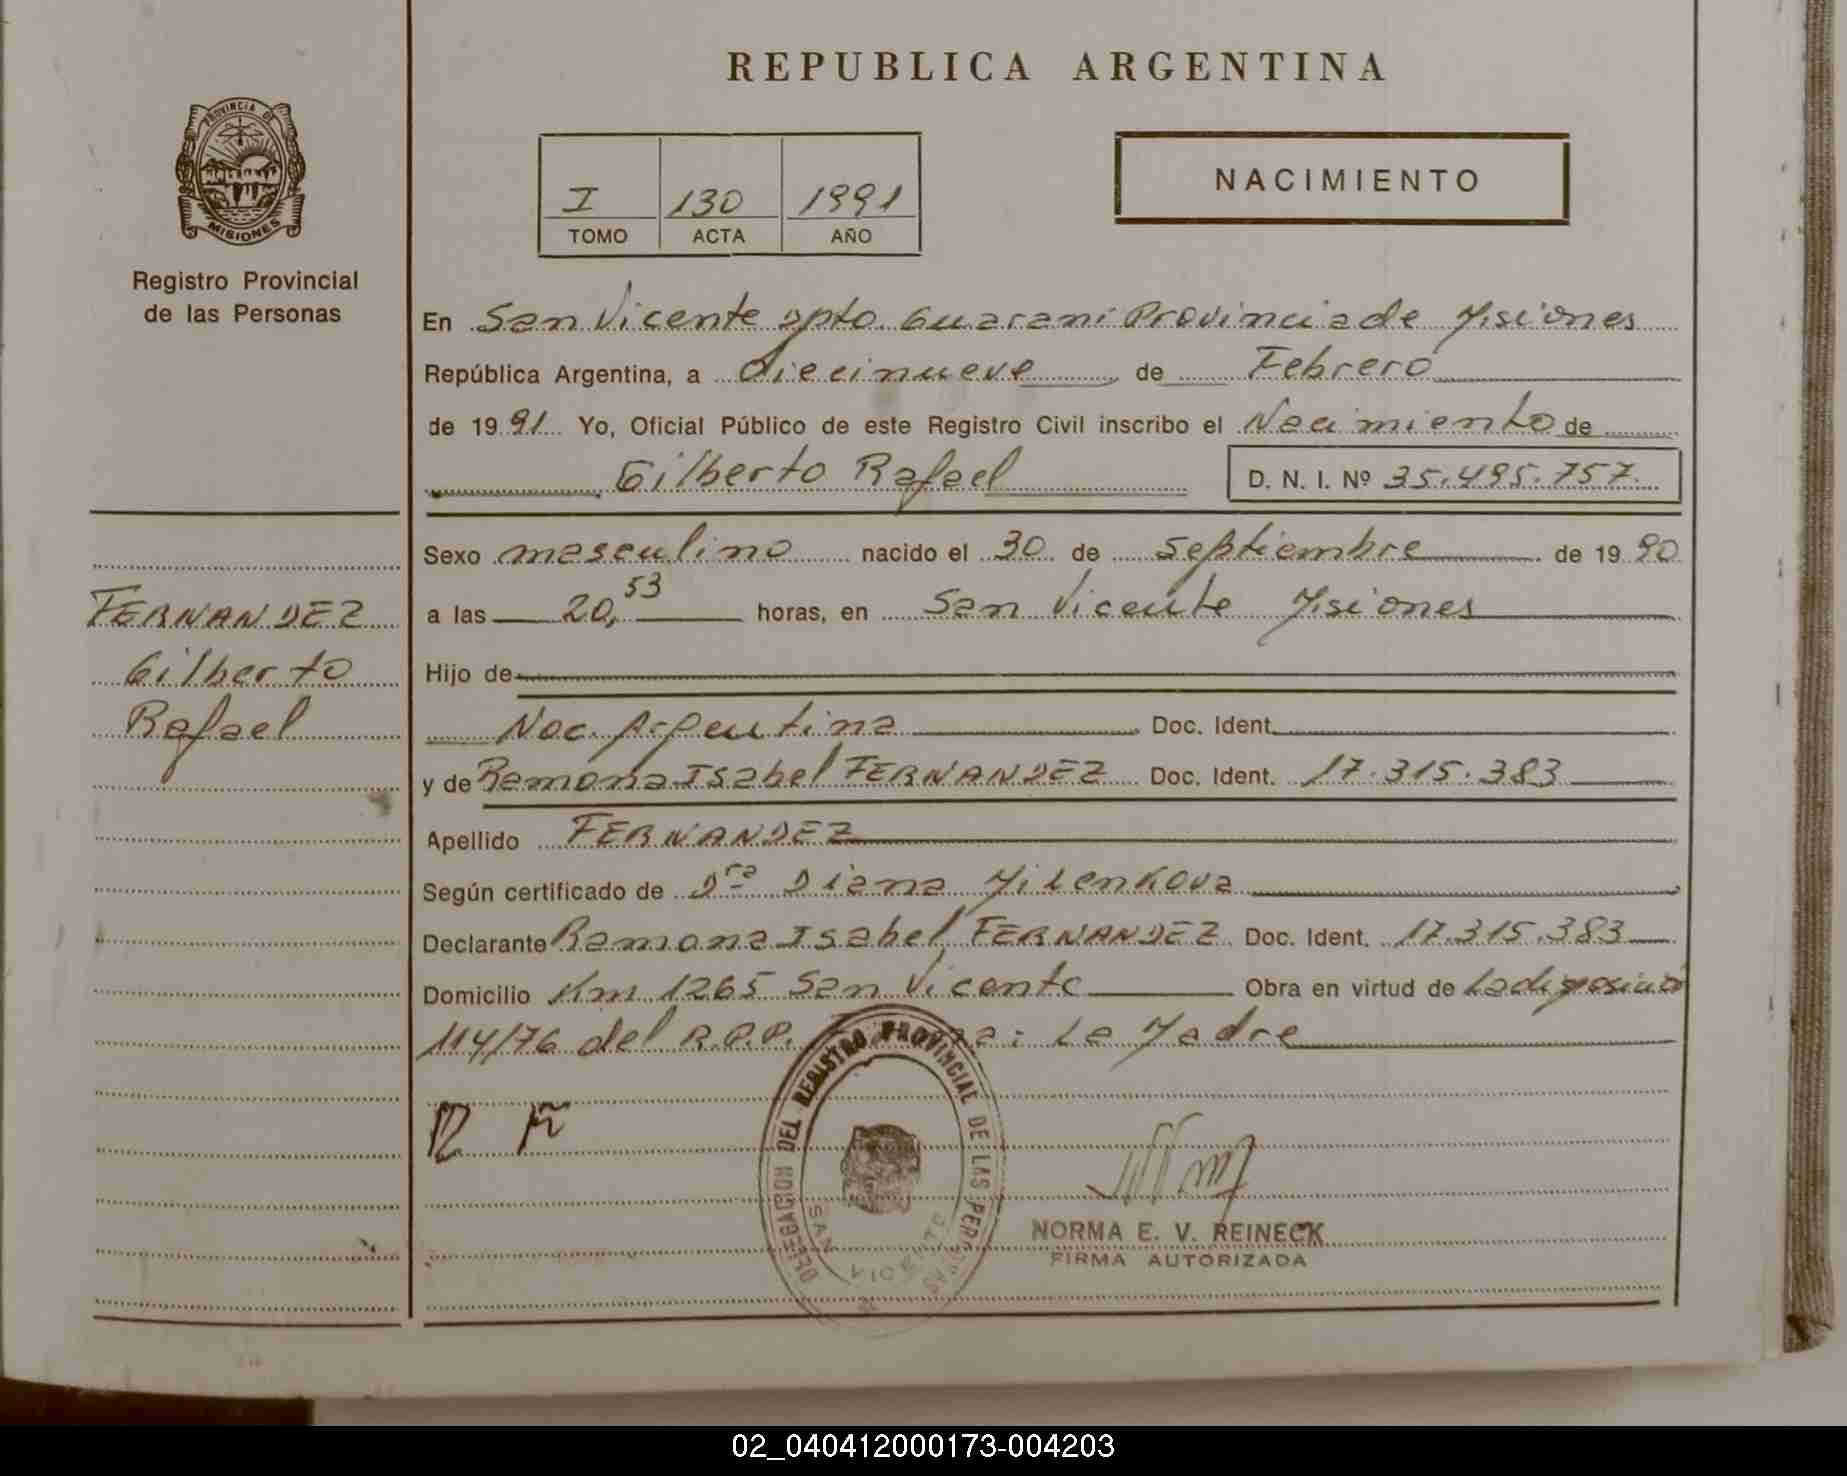 REPUBLICA ARGENTINA
PROVINCIA DE
MISIONES
Registro Provincial
de las Personas
I 130 1991
TOMO ACTA AÑO
NACIMIENTO
En San Vicente Dpto. Guarani Provincia de Misiones
República Argentina, a diecinueve de Febrero
de 1991 Yo, Oficial Público de este Registro Civil inscribo el Nacimiento de
Gilberto Rafael D. N. I. Nº 35.495.757
Sexo masculino nacido el 30 de Septiembre de 1990
a las 20,53 horas, en San Vicente Misiones
Hijo de
Nac. Argentina Doc. Ident.
y de Ramona Isabel FERNANDEZ Doc. Ident. 17.315.383
Apellido FERNANDEZ
Según certificado de Dra Diana Milenkova
Declarante Ramona Isabel FERNANDEZ Doc. Ident. 17.315.383
Domicilio Km 1265 San Vicente Obra en virtud de La disposición
114/76 del R.P.P. La Madre
FERNANDEZ
Gilberto
Rafael
R F
DELEGADO DEL REGISTRO PROVINCIAL DE LAS PERSONAS
SAN VICENTE
NORMA E. V. REINECK
FIRMA AUTORIZADA
02_040412000173-004203